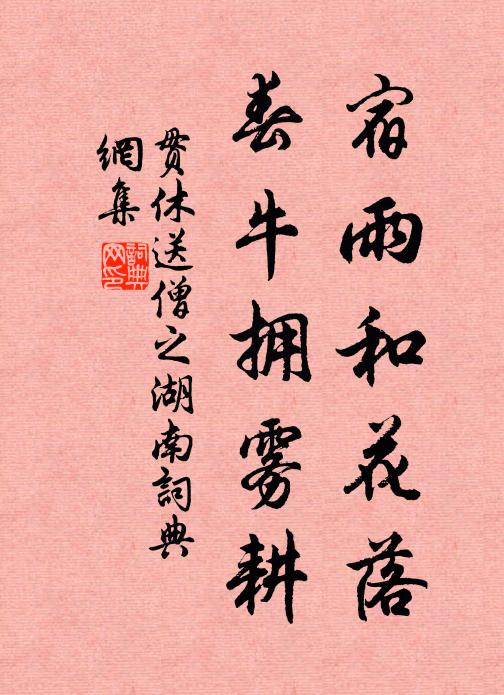 宿雨和花落
春牛拥雾耕
贯休送僧之湖南詞典
網集
詞典网印